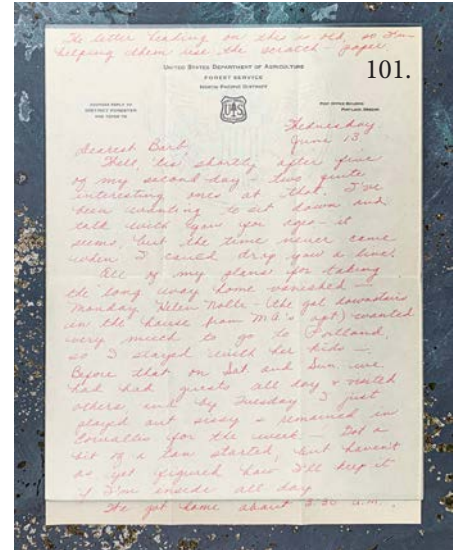 The letter heading on this is old, so I'm
helping them use the scratch-paper.
101.
UNITED STATES DEPARTMENT OF AGRICULTURE
FOREST SERVICE
NORTH PACIFIC DISTRICT
ADDRESS REPLY TO
DISTRICT FORESTER
AND REFER TO
POST OFFICE BUILDING
PORTLAND, OREGON
Wednesday
June 13
Dearest Barb,
Well, 'tis shortly after five
of my second day - two quite
interesting ones at that. I've
been wanting to sit down and
talk with you for ages - it
seems, but the time never came
when I could drop you a line.
All of my plans for taking
the long way home vanished -
Monday Helen Nolte - (the gal downstairs
in the house from M.A.'s apt) wanted
very much to go to Portland,
so I stayed with her kids -.
Before that on Sat. and Sun. we
had had guests all day & visited
others, and by Tuesday I just
played out sissy & remained in
Corvallis for the week - Got a
bit of a tan started, but haven't
as yet figured how I'll keep it
if I'm inside all day
We got home about 3:30 a.m.